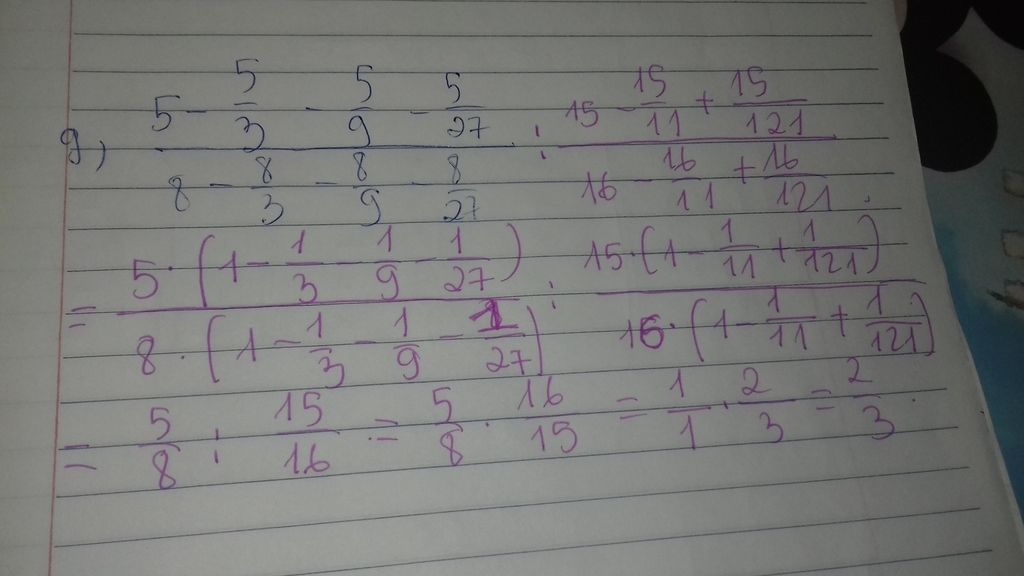 g, \frac{5 - \frac{5}{3} - \frac{5}{9} - \frac{5}{27}}{8 - \frac{8}{3} - \frac{8}{9} - \frac{8}{27}} : \frac{15 - \frac{15}{11} + \frac{15}{121}}{16 - \frac{16}{11} + \frac{16}{121}}.
= \frac{5 \cdot (1 - \frac{1}{3} - \frac{1}{9} - \frac{1}{27})}{8 \cdot (1 - \frac{1}{3} - \frac{1}{9} - \frac{1}{27})} : \frac{15 \cdot (1 - \frac{1}{11} + \frac{1}{121})}{16 \cdot (1 - \frac{1}{11} + \frac{1}{121})}
= \frac{5}{8} : \frac{15}{16} = \frac{5}{8} \cdot \frac{16}{15} = \frac{1}{1} \cdot \frac{2}{3} = \frac{2}{3}.